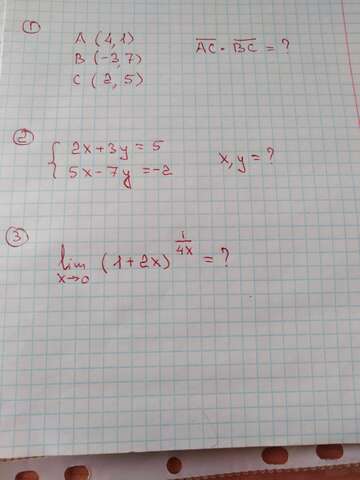 1
A (4,1)
B (-3,7)
C (2,5)
AC · BC = ?
2
2x+3y = 5
5x-7y = -2
x,y = ?
3
lim x→0 (1+2x)^(1/4x) = ?